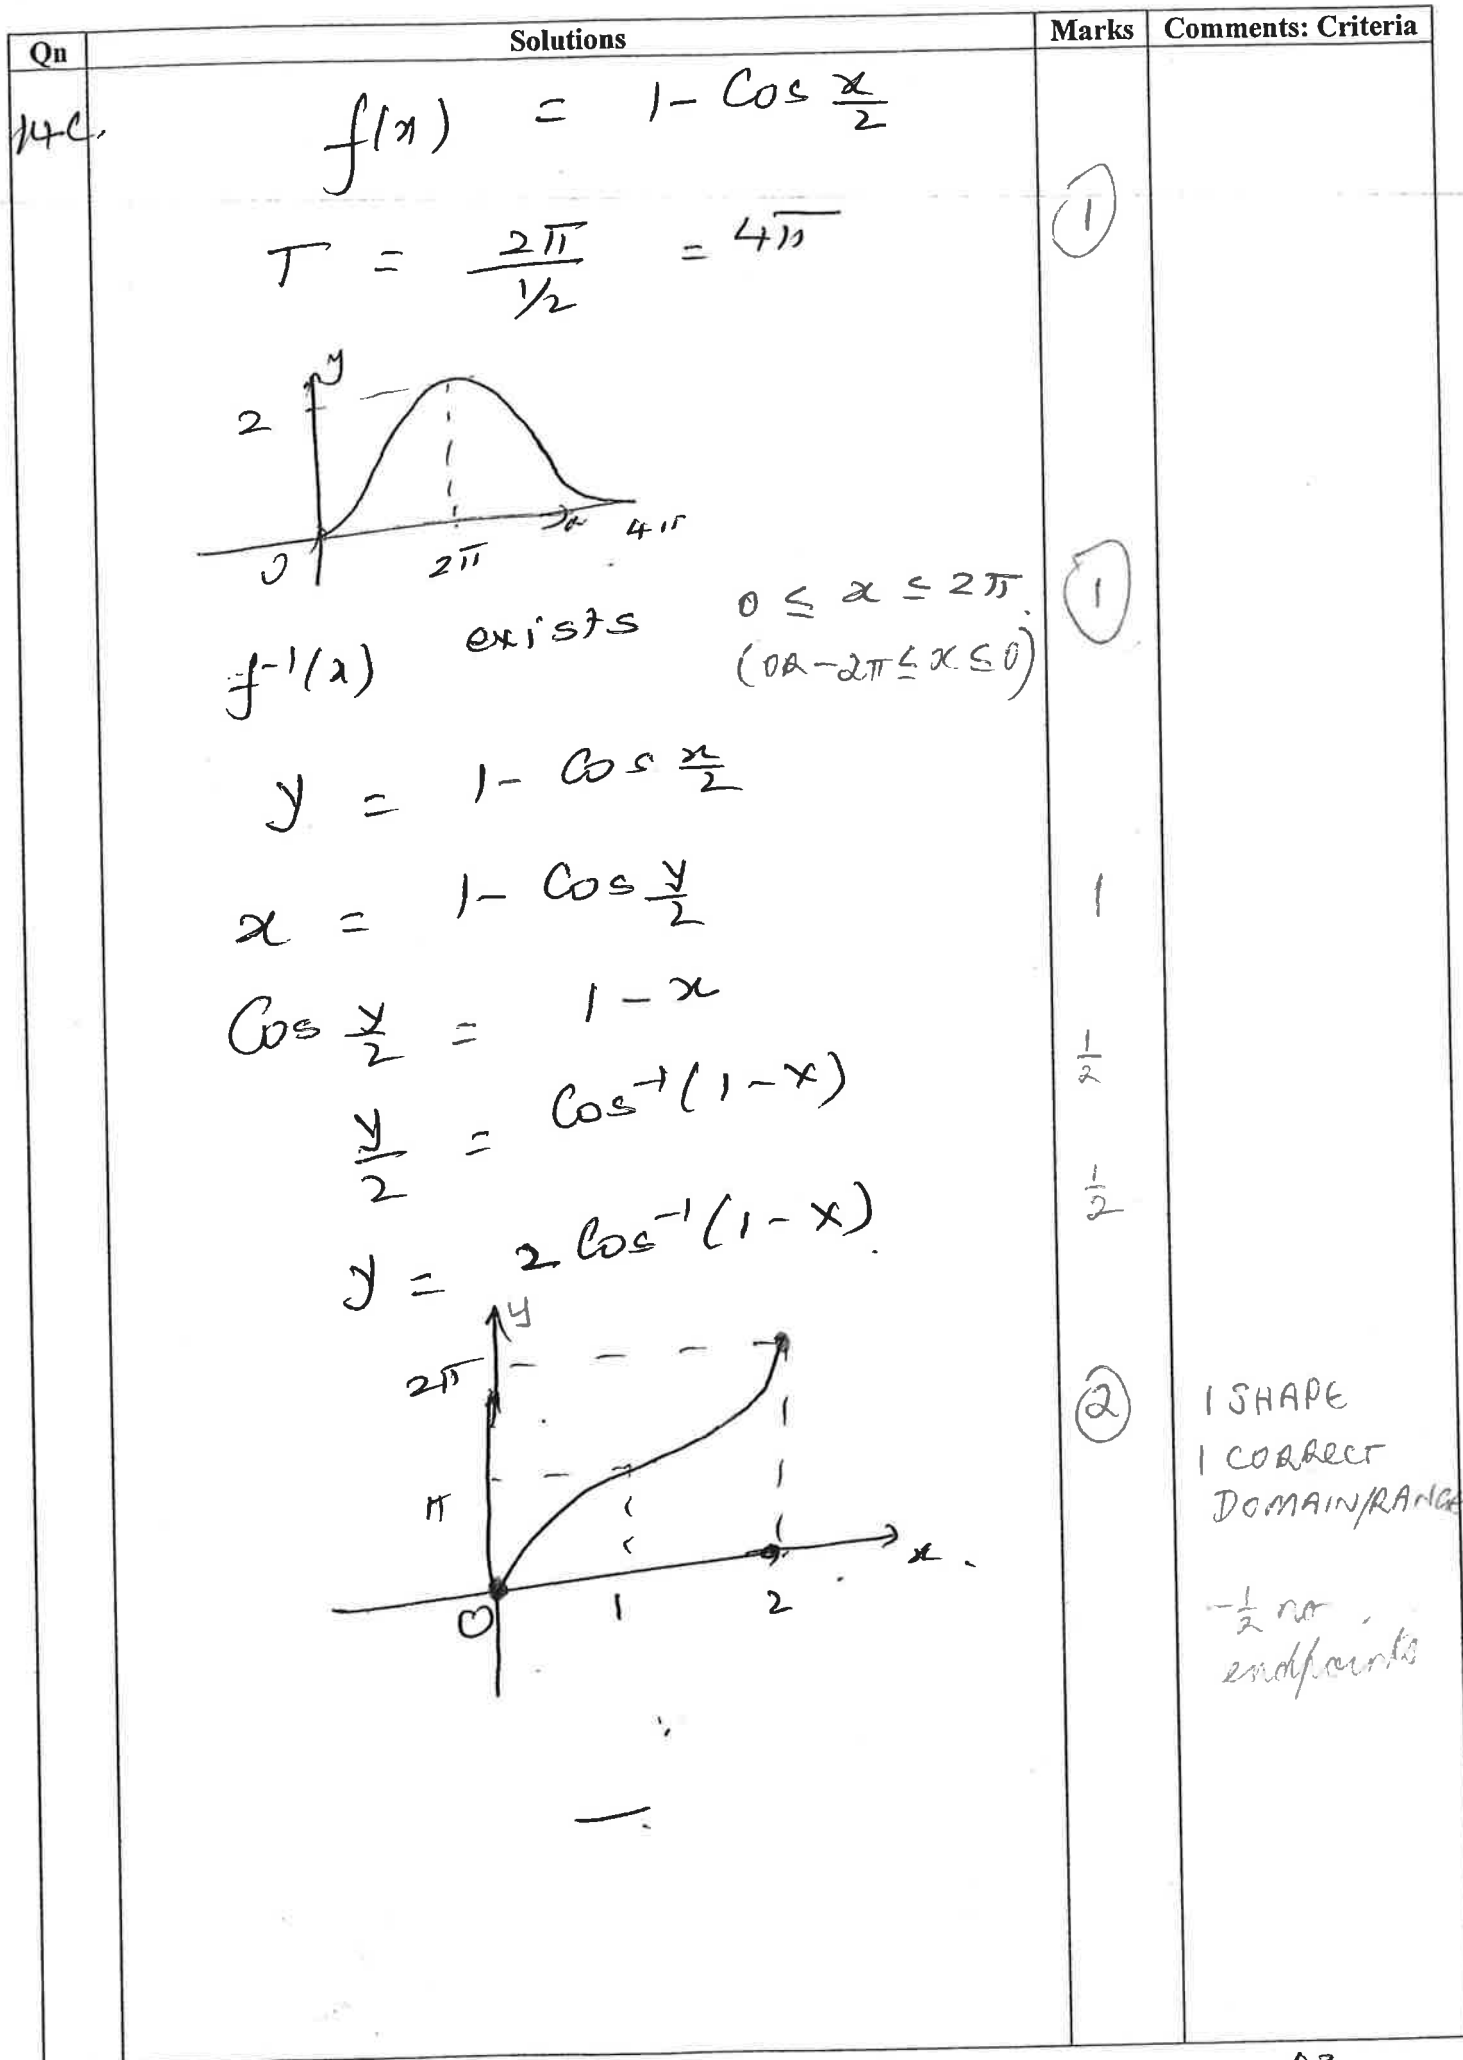 Qn Solutions Marks Comments: Criteria
14c. f(x) = 1 - Cos x/2
T = 2π / 1/2 = 4π
1
y
2
0 2π x 4π
f⁻¹(x) exists 0 ≤ x ≤ 2π.
1
(OR -2π ≤ x ≤ 0)
y = 1 - Cos x/2
x = 1 - Cos y/2
1
Cos y/2 = 1 - x
1/2
y/2 = Cos⁻¹(1 - x)
1/2
y = 2 Cos⁻¹(1 - x).
y
2π
2
1 SHAPE
1 CORRECT
DOMAIN/RANGE
π
x.
0 1 2
-1/2 no
endpoints